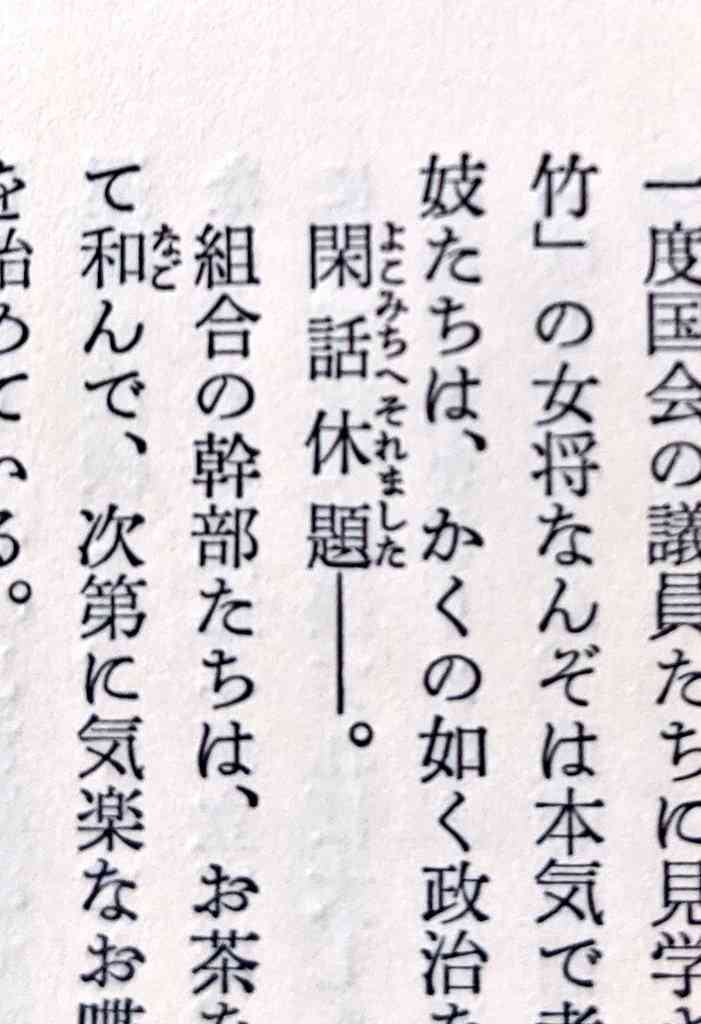 一度国会の議員たちに見学
竹」の女将なんぞは本気で考
妓たちは、かくの如く政治
閑話休題――。
よこみちへそれました
組合の幹部たちは、お茶
て和んで、次第に気楽なお喋
なご
を始めている。